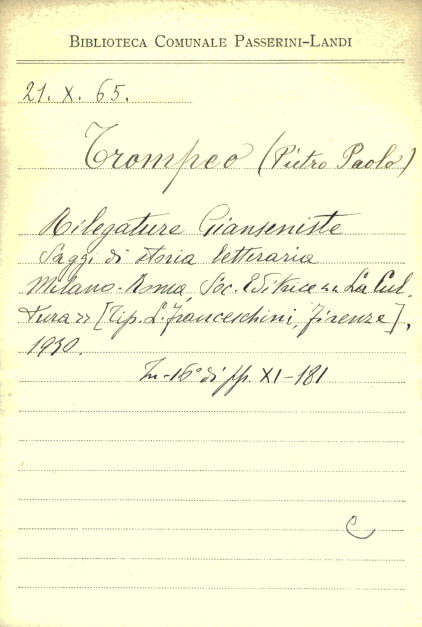 BIBLIOTECA COMUNALE PASSERINI-LANDI
21. X. 65.
Trompeo (Pietro Paolo)
Rilegature Gianseniste
Saggi di storia letteraria
Milano-Roma, Soc. Editrice << La Cul.
tura >> [Tip. L. Franceschini, Firenze],
1930.
In-16° di pp. XI-181
C